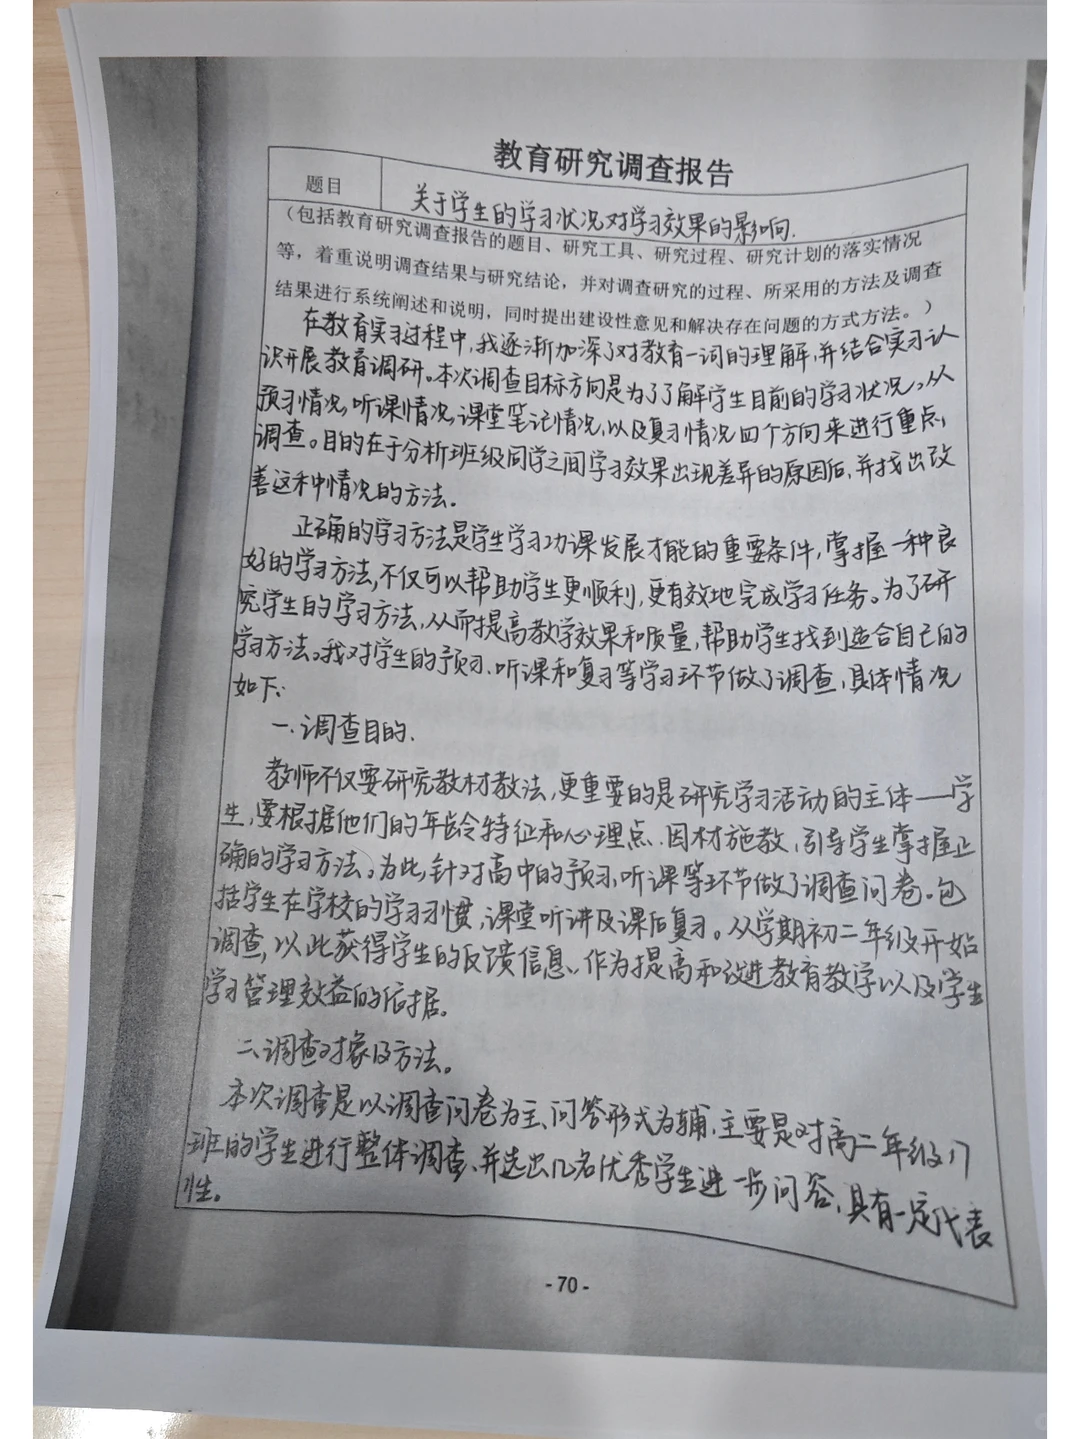 教育研究调查报告
题目
关于学生的学习状况对学习效果的影响.
（包括教育研究调查报告的题目、研究工具、研究过程、研究计划的落实情况
等，着重说明调查结果与研究结论，并对调查研究的过程、所采用的方法及调查
结果进行系统阐述和说明，同时提出建设性意见和解决存在问题的方式方法。）
在教育实习过程中,我逐渐加深了对教育一词的理解,并结合实习认
识开展教育调研。本次调查目标方向是为了了解学生目前的学习状况。从
预习情况,听课情况,课堂笔记情况,以及复习情况四个方向来进行重点
调查。目的在于分析班级同学之间学习效果出现差异的原因后,并找出改
善这种情况的方法.
正确的学习方法是学生学习功课发展才能的重要条件,掌握一种良
好的学习方法,不仅可以帮助学生更顺利,更有效地完成学习任务。为了研
究学生的学习方法,从而提高教学效果和质量,帮助学生找到适合自己的
学习方法。我对学生的预习.听课和复习等学习环节做了调查,具体情况
如下:
一.调查目的.
教师不仅要研究教材教法,更重要的是研究学习活动的主体——学
生,要根据他们的年龄特征和心理点.因材施教,引导学生掌握正
确的学习方法。为此,针对高中的预习,听课等环节做了调查问卷。包
括学生在学校的学习习惯,课堂听讲及课后复习。从学期初二年级开始
调查,以此获得学生的反馈信息、作为提高和改进教育教学以及学生
学习管理效益的依据。
二.调查对象及方法。
本次调查是以调查问卷为主、问答形式为辅.主要是对高二年级17
班的学生进行整体调查、并选出几名优秀学生进一步问答,具有一定代表
性。
- 70 -